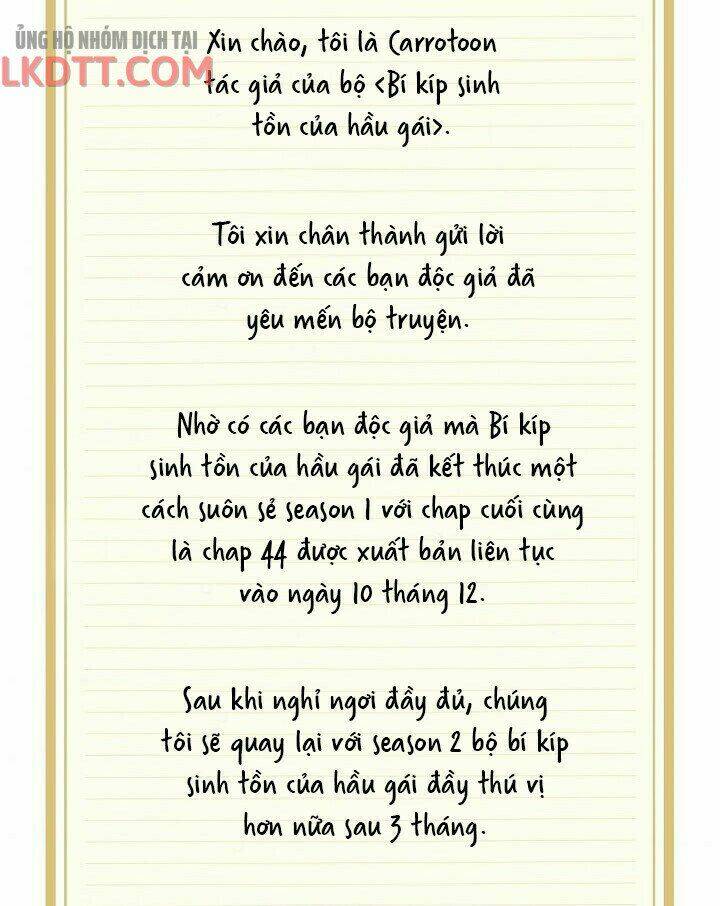 ỦNG HỘ NHÓM DỊCH TẠI
LKDTT.COM
Xin chào, tôi là Carrotoon
tác giả của bộ <Bí kíp sinh
tồn của hầu gái>.
Tôi xin chân thành gửi lời
cảm ơn đến các bạn độc giả đã
yêu mến bộ truyện.
Nhờ có các bạn độc giả mà Bí kíp
sinh tồn của hầu gái đã kết thúc một
cách suôn sẻ season 1 với chap cuối cùng
là chap 44 được xuất bản liên tục
vào ngày 10 tháng 12.
Sau khi nghỉ ngơi đầy đủ, chúng
tôi sẽ quay lại với season 2 bộ bí kíp
sinh tồn của hầu gái đầy thú vị
hơn nữa sau 3 tháng.